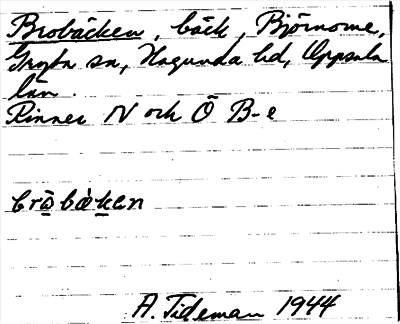 Brobäcken, bäck, Björnome,
Gryta sn, Hagunda hd, Uppsala
län.
Rinner N och Ö B-e
bròbä̀ken
A. Tideman 1944